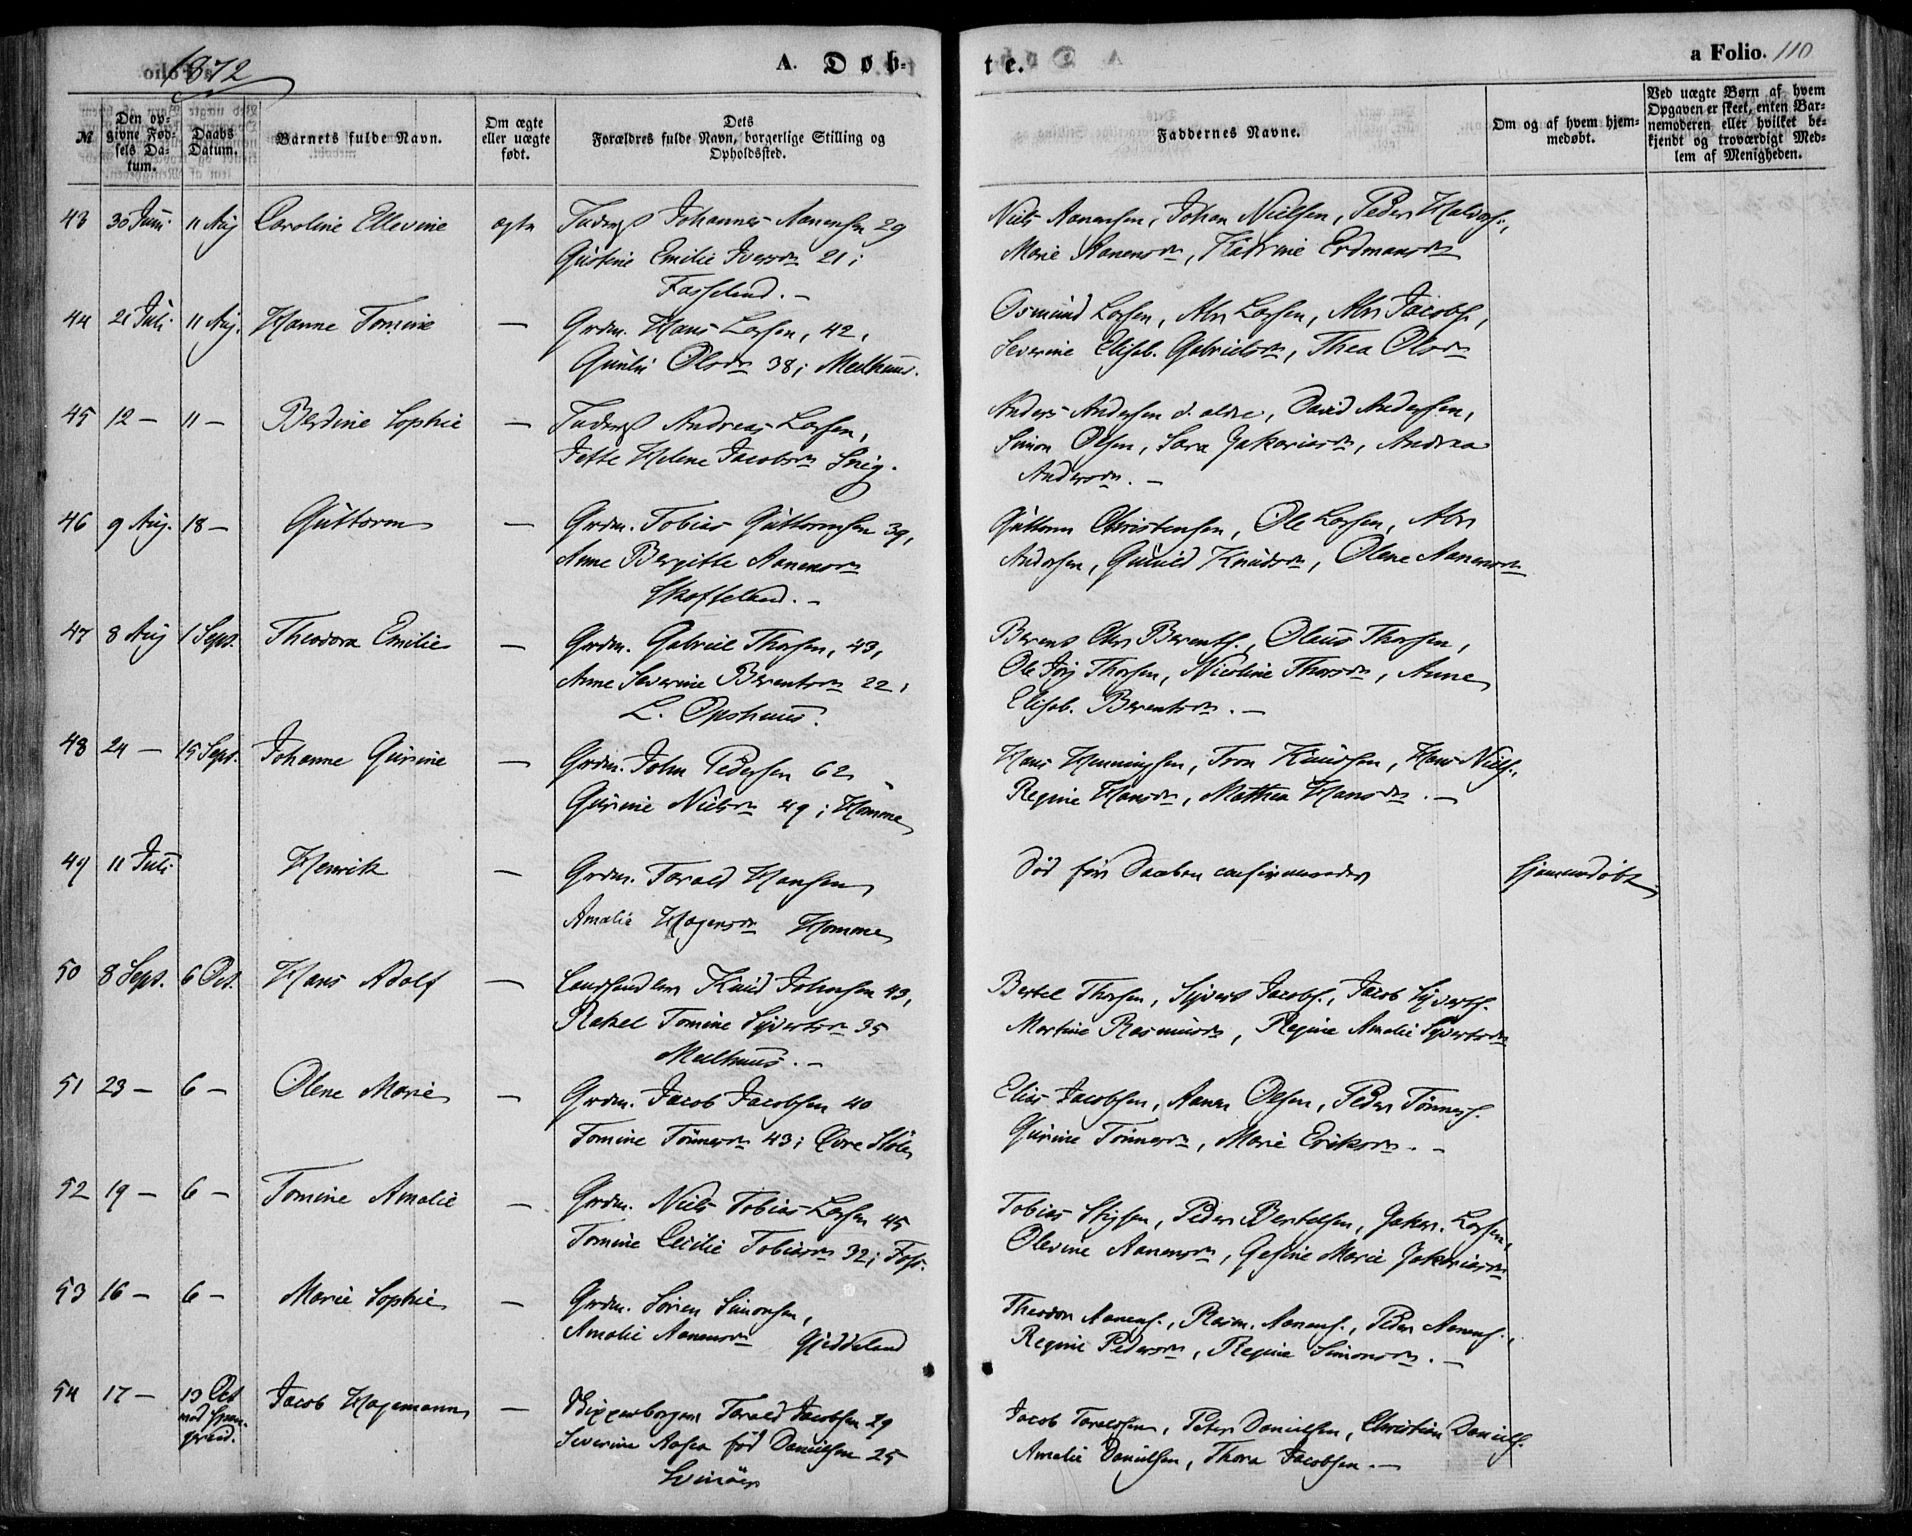 1872
A. Døb-
te.
a Folio. 110
№
Den op-
givne Fød-
sels Da-
tum.
Daabs
Datum.
Barnets fulde Navn.
Om ægte
eller uægte
født.
Dets
Forældres fulde Navn, borgerlige Stilling og
Opholdssted.
Faddernes Navne.
Om og af hvem hjem-
medøbt.
Ved uægte Børn af hvem
Opgaven er skeet, enten Bar-
nemoderen eller hvilket be-
kjendt og troværdigt Med-
lem af Menigheden.
43 30 Juni 11 Aug Caroline Ellevine ægte Johannes Aanensen 29
Gustine Emilie Iversdn 21;
Fasseland. —
Niels Aanensen, Johan Nielsen, Peder
Marie Aanensdn, Katrine Erdmansdn
44 21 Juli 11 Aug. Hanne Tomine — Grdm. Hans Larsen, 42,
Gunild Olsdn 38; Melhuus.
Osmund Larsen, Abr Larsen, Abr Jacobs.,
Severine Elisab. Gabrielsdn, Thea Olsdn
45 12 — 11 — Berdine Sophie — Andreas Larsen,
Jette Helene Jacobsdn Snig.
Anders Andersen d. ældre, David Andersen,
Simon Olsen, Sara Zakariasdn, Andrea
Andersdn. —
46 9 Aug. 18 — Guttorm — Grdm. Tobias Guttormsen 39,
Anne Bergitte Aanensdn
Skofteland. —
Guttorm Christensen, Ole Larsen, Abr
Andersen, Gunild Knudsdn, Olene Aanensdn
47 8 Aug 1 Sept. Theodora Emilie — Grdm. Gabriel Thorsen, 43,
Anne Severine Berentsdn 22,
L. Opshuus.
Berent Chr Berents., Oleus Thorsen,
Ole Jørg Thorsen, Nicoline Thorsdn, Anne
Elisab. Berentsdn. —
48 24 — 15 Sept. Johanne Gurine — Grdm. John Pedersen 62
Gurine Nielsdn 49; Homme
Hans Henningsen, Tron Knudsen, Hans Niels.,
Regine Hansdn, Mathea Hansdn. —
49 11 Juli Henrik — Grdm. Torald Hansen
Amalie Hagensdn Homme
Død før Daaben confirmeredes
hjemmedøbt
50 8 Sept. 6 Oct. Hans Adolf — Landhandler Knud Johnsen 43,
Rakel Tomine Syvertsdn 35
Melhuus. —
Bertel Thorsen, Syvert Jacobs., Jacob Syverts.
Martine Rasmusdn, Regine Amalie Syvertsdn
51 23 — 6 — Olene Marie — Grdm. Jacob Jacobsen 40
Tomine Tønnesdn 43; Øvre Støle
Elias Jacobsen, Aanen Olsen, Peder Tønnes.
Gurine Tønnesdn, Marie Eriksdn. —
52 19 — 6 — Tomine Amalie — Grdm. Niels Tobias Larsen 45
Tomine Cecilie Tobiasdn 32; Foss.
Tobias Stigsen, Peder Bertelsen, Zakar. Larsen,
Olevine Aanensdn, Gesine Marie Zakariasdn
53 16 — 6 — Marie Sophie — Grdm. Søren Simonsen,
Amalie Aanensdn Gjeddeland
Theodor Aanens., Rasm. Aanens., Peder Aanens.,
Regine Pedersdn, Regine Simonsdn. —
54 17 — 13 Oct Jacob Hagemann —
ved Span-
gereid.
Torald Jacobsen 29
Severine Aasea fød Danielsen 25
Svinøer
Jacob Toraldsen, Peter Danielsen, Christian Daniels.
Amalie Danielsen, Thora Jacobsen. —